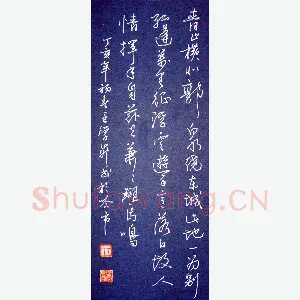 青山横北郭白水绕东城此地一为别
孤蓬万里征浮云游子意落日故人
情挥手自兹去萧萧班马鸣
丁亥年